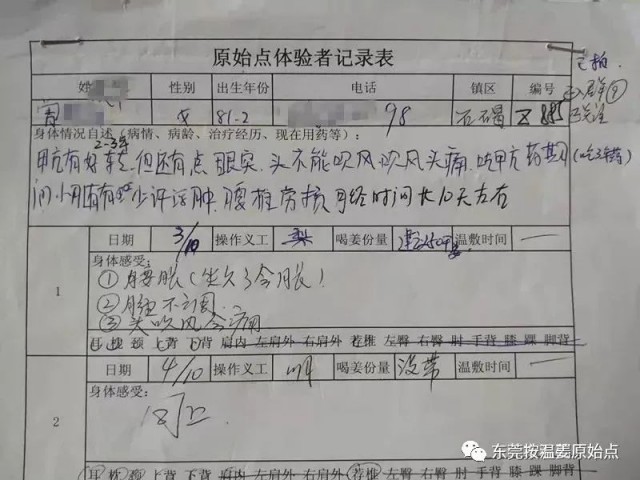 原始点体验者记录表
已拍
姓 性别 出生年份 电话 镇区 编号
女 81-2 98 石碣
身体情况自述（病情、病龄、治疗经历、现在用药等）：
2-3年
甲亢有好转，但还有点眼突、头不能吹风吹风头痛、吃甲亢药期 (吃3年药)
间小月有有少许浮肿、腰椎劳损 月经时间长10天左右
日期 3/10 操作义工 梨 喝姜份量 温敷时间 一
1
身体感受：
① 胀（坐久了会胀）
② 月经不调
③ 头吹风会痛
耳 枕 颈 上背 下背 肩内 左肩外 右肩外 荐椎 左臀 右臀 肘 手背 膝 踝 脚背
日期 4/10 操作义工 喝姜份量 没带 温敷时间 一
2
身体感受：
同上
耳 枕 颈 上背 下背 肩内 左肩外 右肩外 荐椎 左臀 右臀 肘 手背 膝 踝 脚背
东莞按温姜原始点